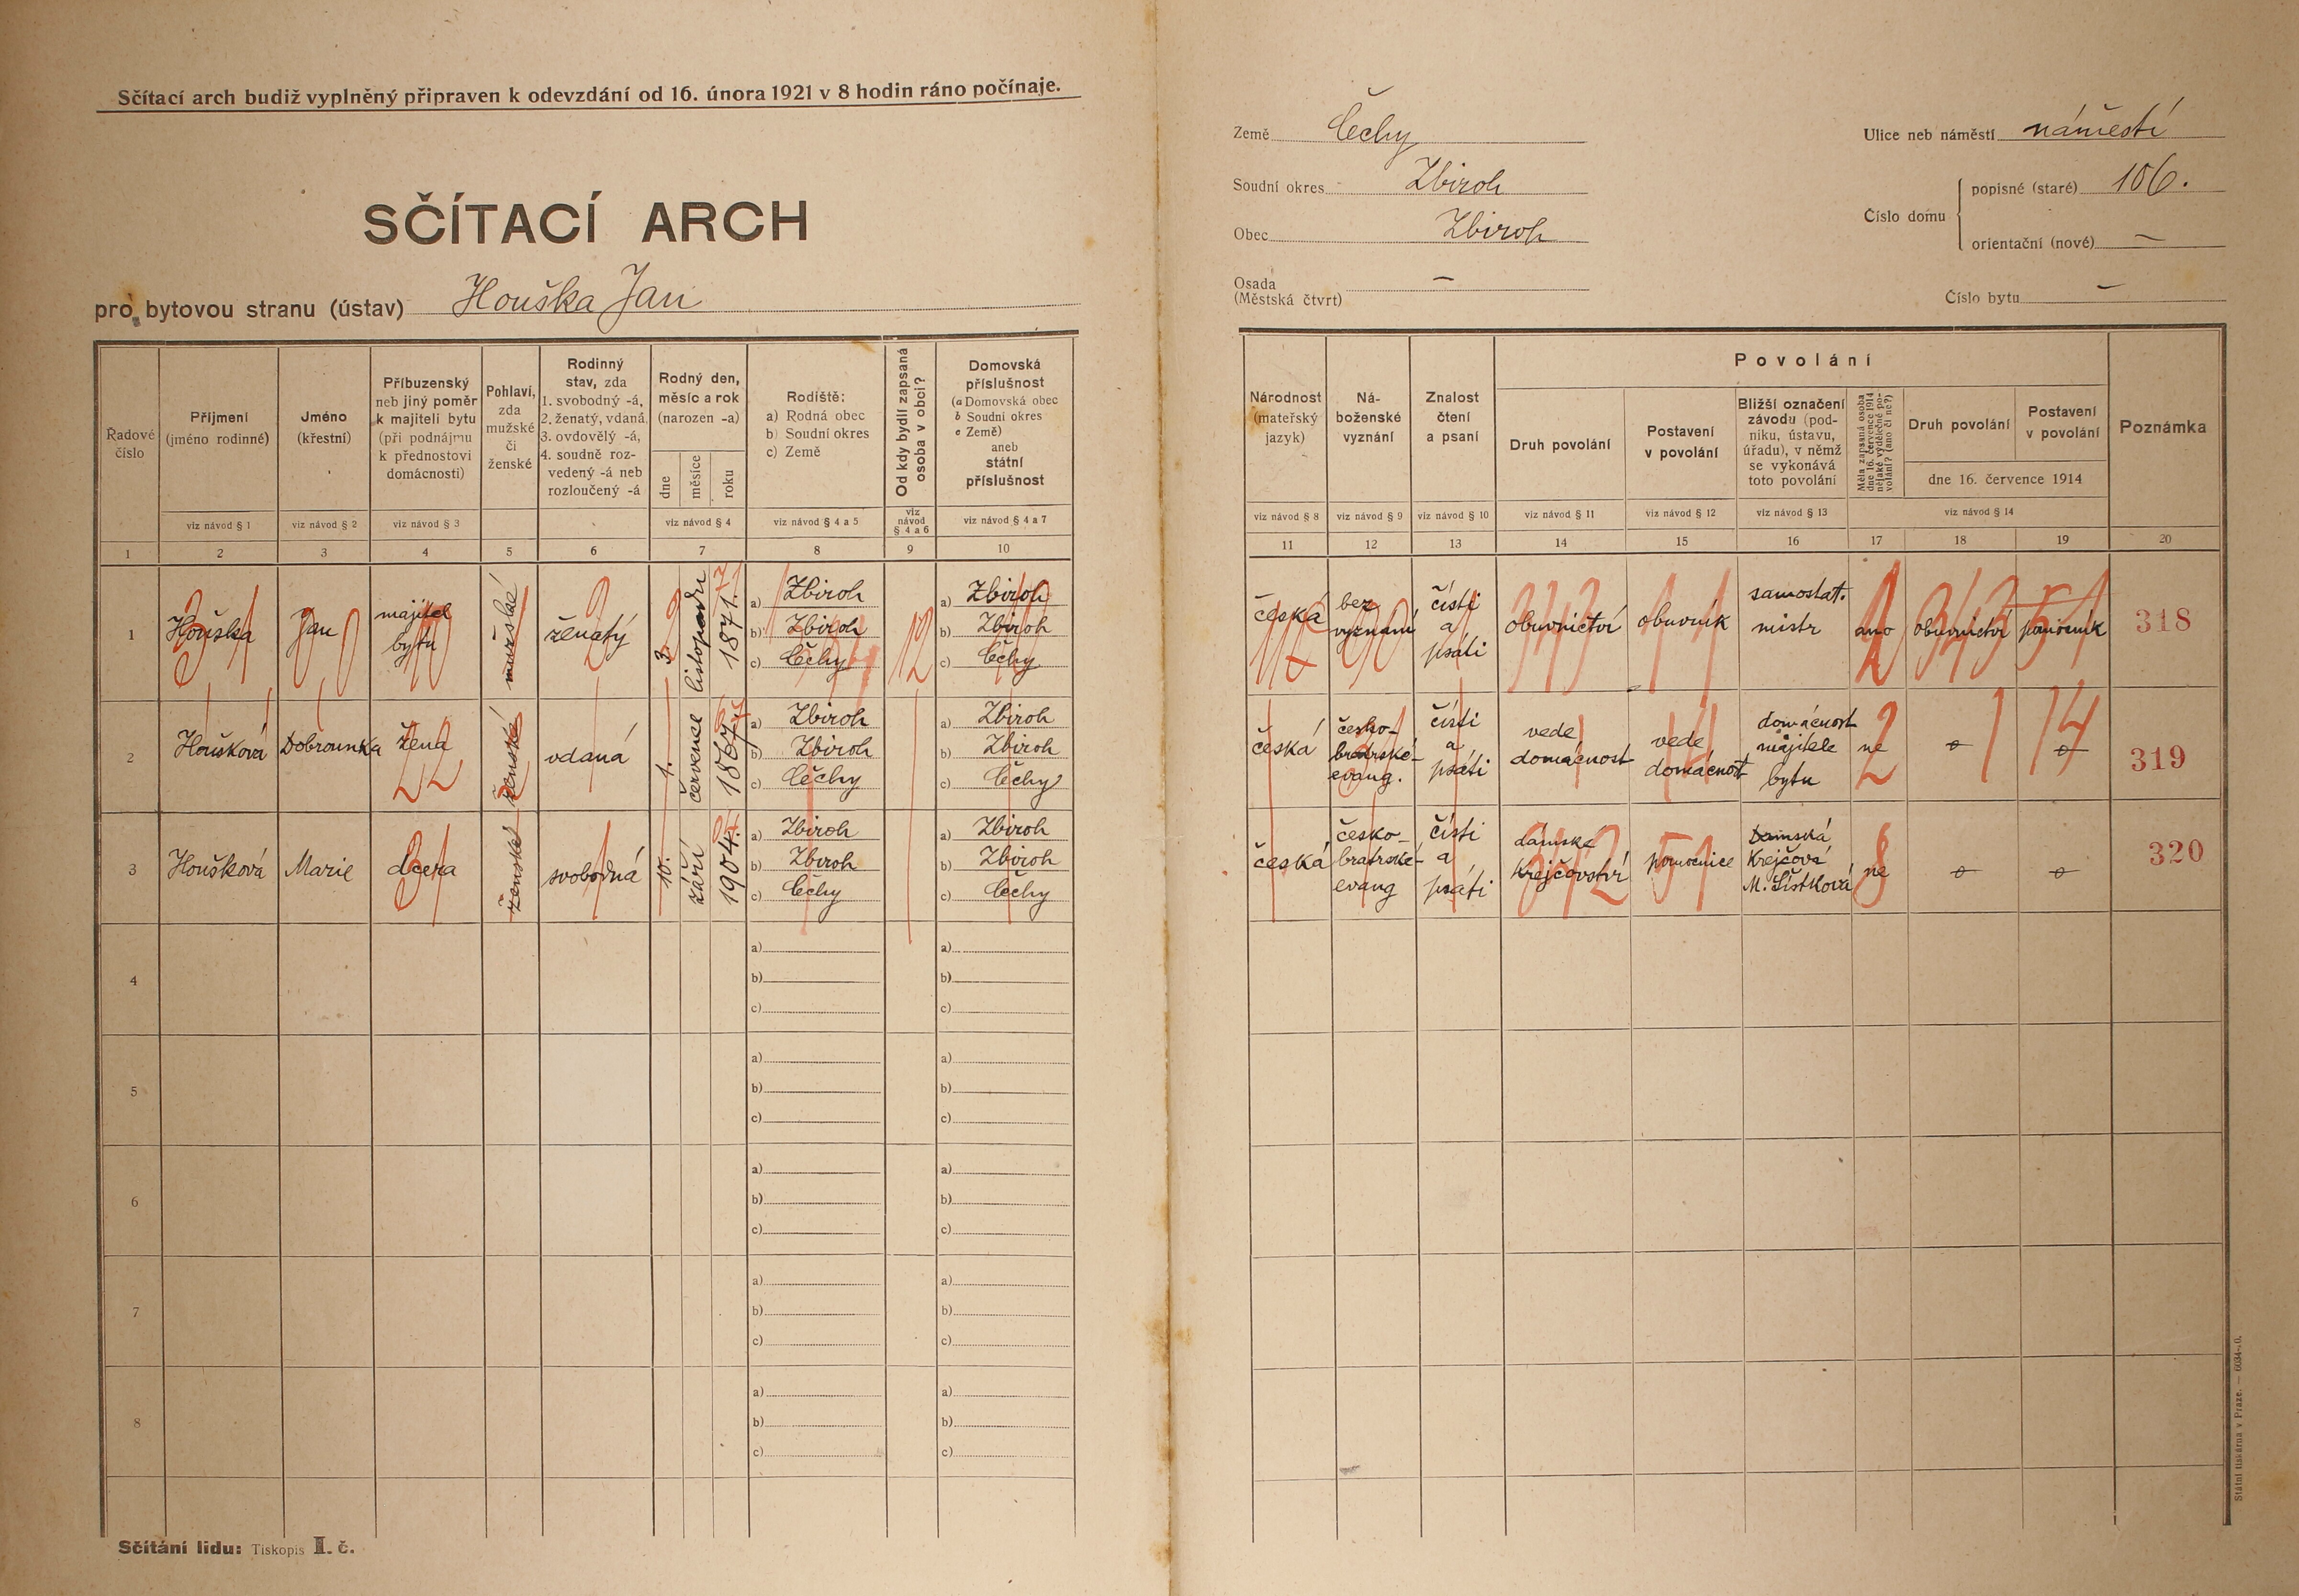 Sčítací arch budiž vyplněný připraven k odevzdání od 16. února 1921 v 8 hodin ráno počínaje.
SČÍTACÍ ARCH
pro bytovou stranu (ústav) Houška Jan
Země Čechy
Soudní okres Zbiroh
Obec Zbiroh
Osada (Městská čtvrt) —
Ulice neb náměstí náměstí
Číslo domu
popisné (staré) 106.
orientační (nové) —
Číslo bytu —
Řadové číslo
Příjmení (jméno rodinné)
Jméno (křestní)
Příbuzenský neb jiný poměr k majiteli bytu (při podnájmu k přednostovi domácnosti)
Pohlaví, zda mužské či ženské
Rodinný stav, zda 1. svobodný -á, 2. ženatý, vdaná, 3. ovdovělý -á, 4. soudně rozvedený -á neb rozloučený -á
Rodný den, měsíc a rok (narozen -a)
dne
měsíce
roku
Rodiště:
a) Rodná obec
b) Soudní okres
c) Země
Od kdy bydlí zapsaná osoba v obci?
Domovská příslušnost
(a Domovská obec
b Soudní okres
c Země)
aneb
státní příslušnost
Národnost (mateřský jazyk)
Náboženské vyznání
Znalost čtení a psaní
Povolání
Druh povolání
Postavení v povolání
Bližší označení závodu (podniku, ústavu, úřadu), v němž se vykonává toto povolání
Měla zapsaná osoba dne 16. července 1914 nějaké výdělečné povolání? (ano či ne?)
Druh povolání
Postavení v povolání
dne 16. července 1914
Poznámka
viz návod § 1
viz návod § 2
viz návod § 3
viz návod § 4
viz návod § 4 a 5
viz návod § 4 a 6
viz návod § 4 a 7
viz návod § 8
viz návod § 9
viz návod § 10
viz návod § 11
viz návod § 12
viz návod § 13
viz návod § 14
1 2 3 4 5 6 7 8 9 10 11 12 13 14 15 16 17 18 19 20
1 Houška Jan majitel bytu mužské ženatý 3. listopadu 1871. a) Zbiroh b) Zbiroh c) Čechy a) Zbiroh b) Zbiroh c) Čechy česká bez vyznání čísti a psáti obuvnictví obuvník samostat. mistr ano obuvnictví pomocník 318
2 Houšková Dobrounka žena ženské vdaná 1. července 1867 a) Zbiroh b) Zbiroh c) Čechy a) Zbiroh b) Zbiroh c) Čechy česká česko-bratrské-evang. čísti a psáti vede domácnost vede domácnost domácnost majitele bytu ne 319
3 Houšková Marie dcera ženské svobodná 10. září 1904. a) Zbiroh b) Zbiroh c) Čechy a) Zbiroh b) Zbiroh c) Čechy česká česko-bratrské-evang čísti a psáti dámské krejčovství pomocnice Damská Krejčová M. Šístková ne 320
4 a) b) c) a) b) c)
5 a) b) c) a) b) c)
6 a) b) c) a) b) c)
7 a) b) c) a) b) c)
8 a) b) c) a) b) c)
Sčítání lidu: Tiskopis I. č.
Státní tiskárna v Praze.